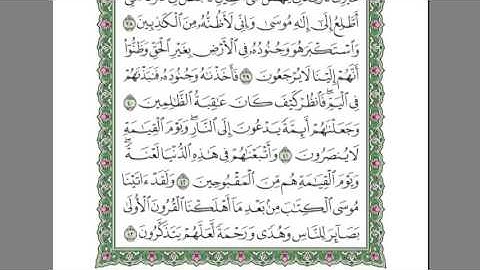 أَطَّلِعُ إِلَىٰٓ إِلَٰهِ مُوسَىٰ وَإِنِّي لَأَظُنُّهُۥ مِنَ ٱلْكَٰذِبِينَ ٣٨
وَٱسْتَكْبَرَ هُوَ وَجُنُودُهُۥ فِي ٱلْأَرْضِ بِغَيْرِ ٱلْحَقِّ وَظَنُّوٓا۟
أَنَّهُمْ إِلَيْنَا لَا يُرْجَعُونَ ٣٩ فَأَخَذْنَٰهُ وَجُنُودَهُۥ فَنَبَذْنَٰهُمْ
فِي ٱلْيَمِّ ۖ فَٱنظُرْ كَيْفَ كَانَ عَٰقِبَةُ ٱلظَّٰلِمِينَ ٤٠
وَجَعَلْنَٰهُمْ أَئِمَّةً يَدْعُونَ إِلَى ٱلنَّارِ ۖ وَيَوْمَ ٱلْقِيَٰمَةِ
لَا يُنصَرُونَ ٤١ وَأَتْبَعْنَٰهُمْ فِي هَٰذِهِ ٱلدُّنْيَا لَعْنَةً ۖ
وَيَوْمَ ٱلْقِيَٰمَةِ هُم مِّنَ ٱلْمَقْبُوحِينَ ٤٢ وَلَقَدْ ءَاتَيْنَا
مُوسَى ٱلْكِتَٰبَ مِنۢ بَعْدِ مَآ أَهْلَكْنَا ٱلْقُرُونَ ٱلْأُولَىٰ
بَصَآئِرَ لِلنَّاسِ وَهُدًى وَرَحْمَةً لَّعَلَّهُمْ يَتَذَكَّرُونَ ٤٣